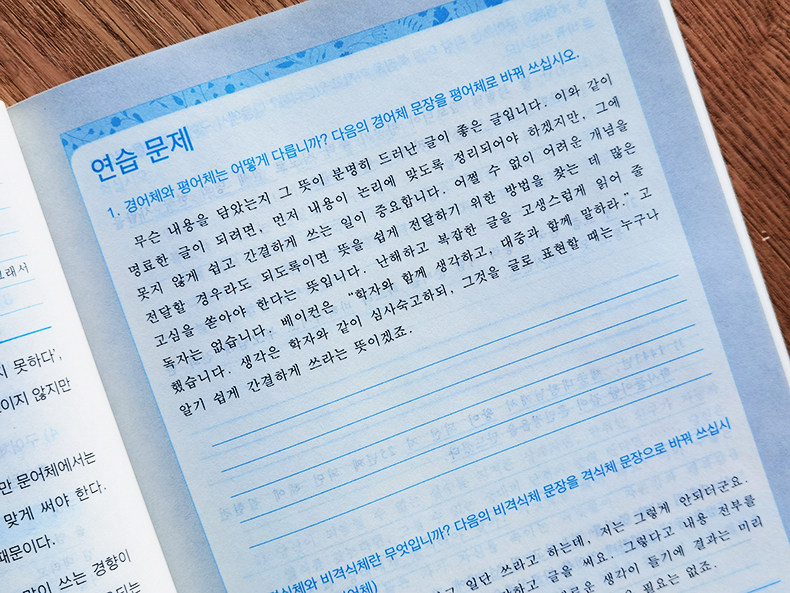 래서
못하다',
않지만
만 문어체에서는
맞게 써야 한다.
때문이다.
쓰는 경향이
연습 문제
1. 경어체와 평어체는 어떻게 다릅니까? 다음의 경어체 문장을 평어체로 바꿔 쓰십시오.
무슨 내용을 담았는지 그 뜻이 분명히 드러난 글이 좋은 글입니다. 이와 같이
명료한 글이 되려면, 먼저 내용이 논리에 맞도록 정리되어야 하겠지만, 그에
못지 않게 쉽고 간결하게 쓰는 일이 중요합니다. 어쩔 수 없이 어려운 개념을
전달할 경우라도 되도록이면 뜻을 쉽게 전달하기 위한 방법을 찾는 데 많은
고심을 쏟아야 한다는 뜻입니다. 난해하고 복잡한 글을 고생스럽게 읽어 줄
독자는 없습니다. 베이컨은 “학자와 함께 생각하고, 대중과 함께 말하라.” 고
했습니다. 생각은 학자와 같이 심사숙고하되, 그것을 글로 표현할 때는 누구나
알기 쉽게 간결하게 쓰라는 뜻이겠죠.
격식체와 비격식체란 무엇입니까? 다음의 비격식체 문장을 격식체 문장으로 바꿔 쓰십시
일단 쓰라고 하는데, 저는 그렇게 안되더군요.
글을 써요. 그렇다고 내용 전부를
생각이 들기에 결과는 미리
필요는 없죠.